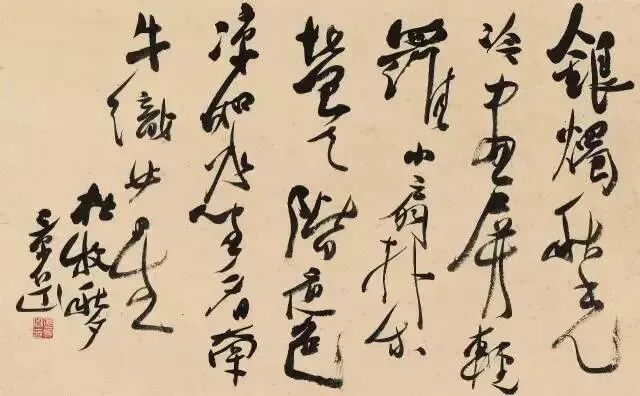 銀燭秋光
冷畫屏輕
羅小扇撲流
螢天階夜色
涼如水坐看牽
牛織女星
杜牧秋夕